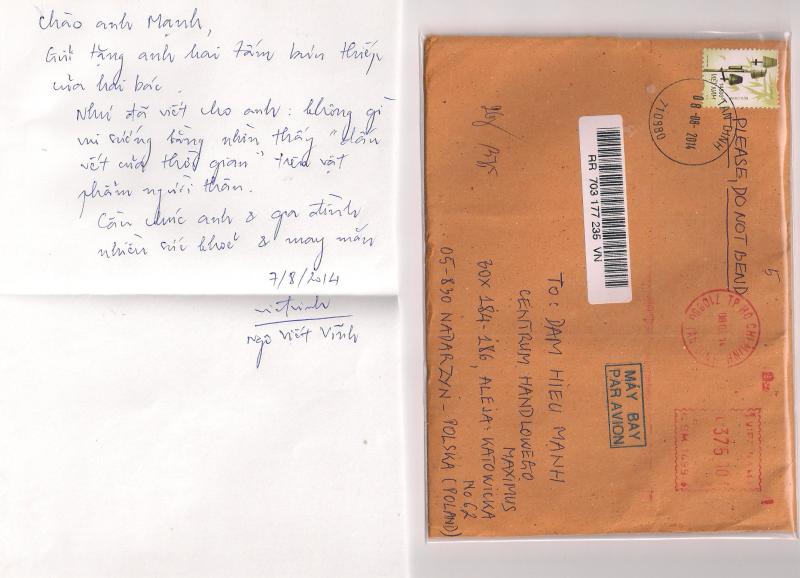 Chào anh Mạnh,
Gửi tặng anh hai tấm bưu thiếp
của hai bác.
Như đã viết cho anh: không gì
vui sướng bằng nhìn thấy "dấu
vết của thời gian" trên vật
phẩm người thân.
Cầu chúc anh & gia đình
nhiều sức khoẻ & may mắn
7/8/2014
Ngô Viết Vĩnh
PLEASE, DO NOT BEND
5
TÂN ĐỊNH
08-08-2014
710980
RR 703 177 235 VN
TP HO CHI MINH
MÁY BAY
PAR AVION
375 10
To: DAM HIEU MANH
CENTRUM HANDLOWEGO
MAXIMUS
BOX 184-186, ALEJA: KATOWICKA
No 62
05-830 NADARZYN - POLSKA (POLAND)